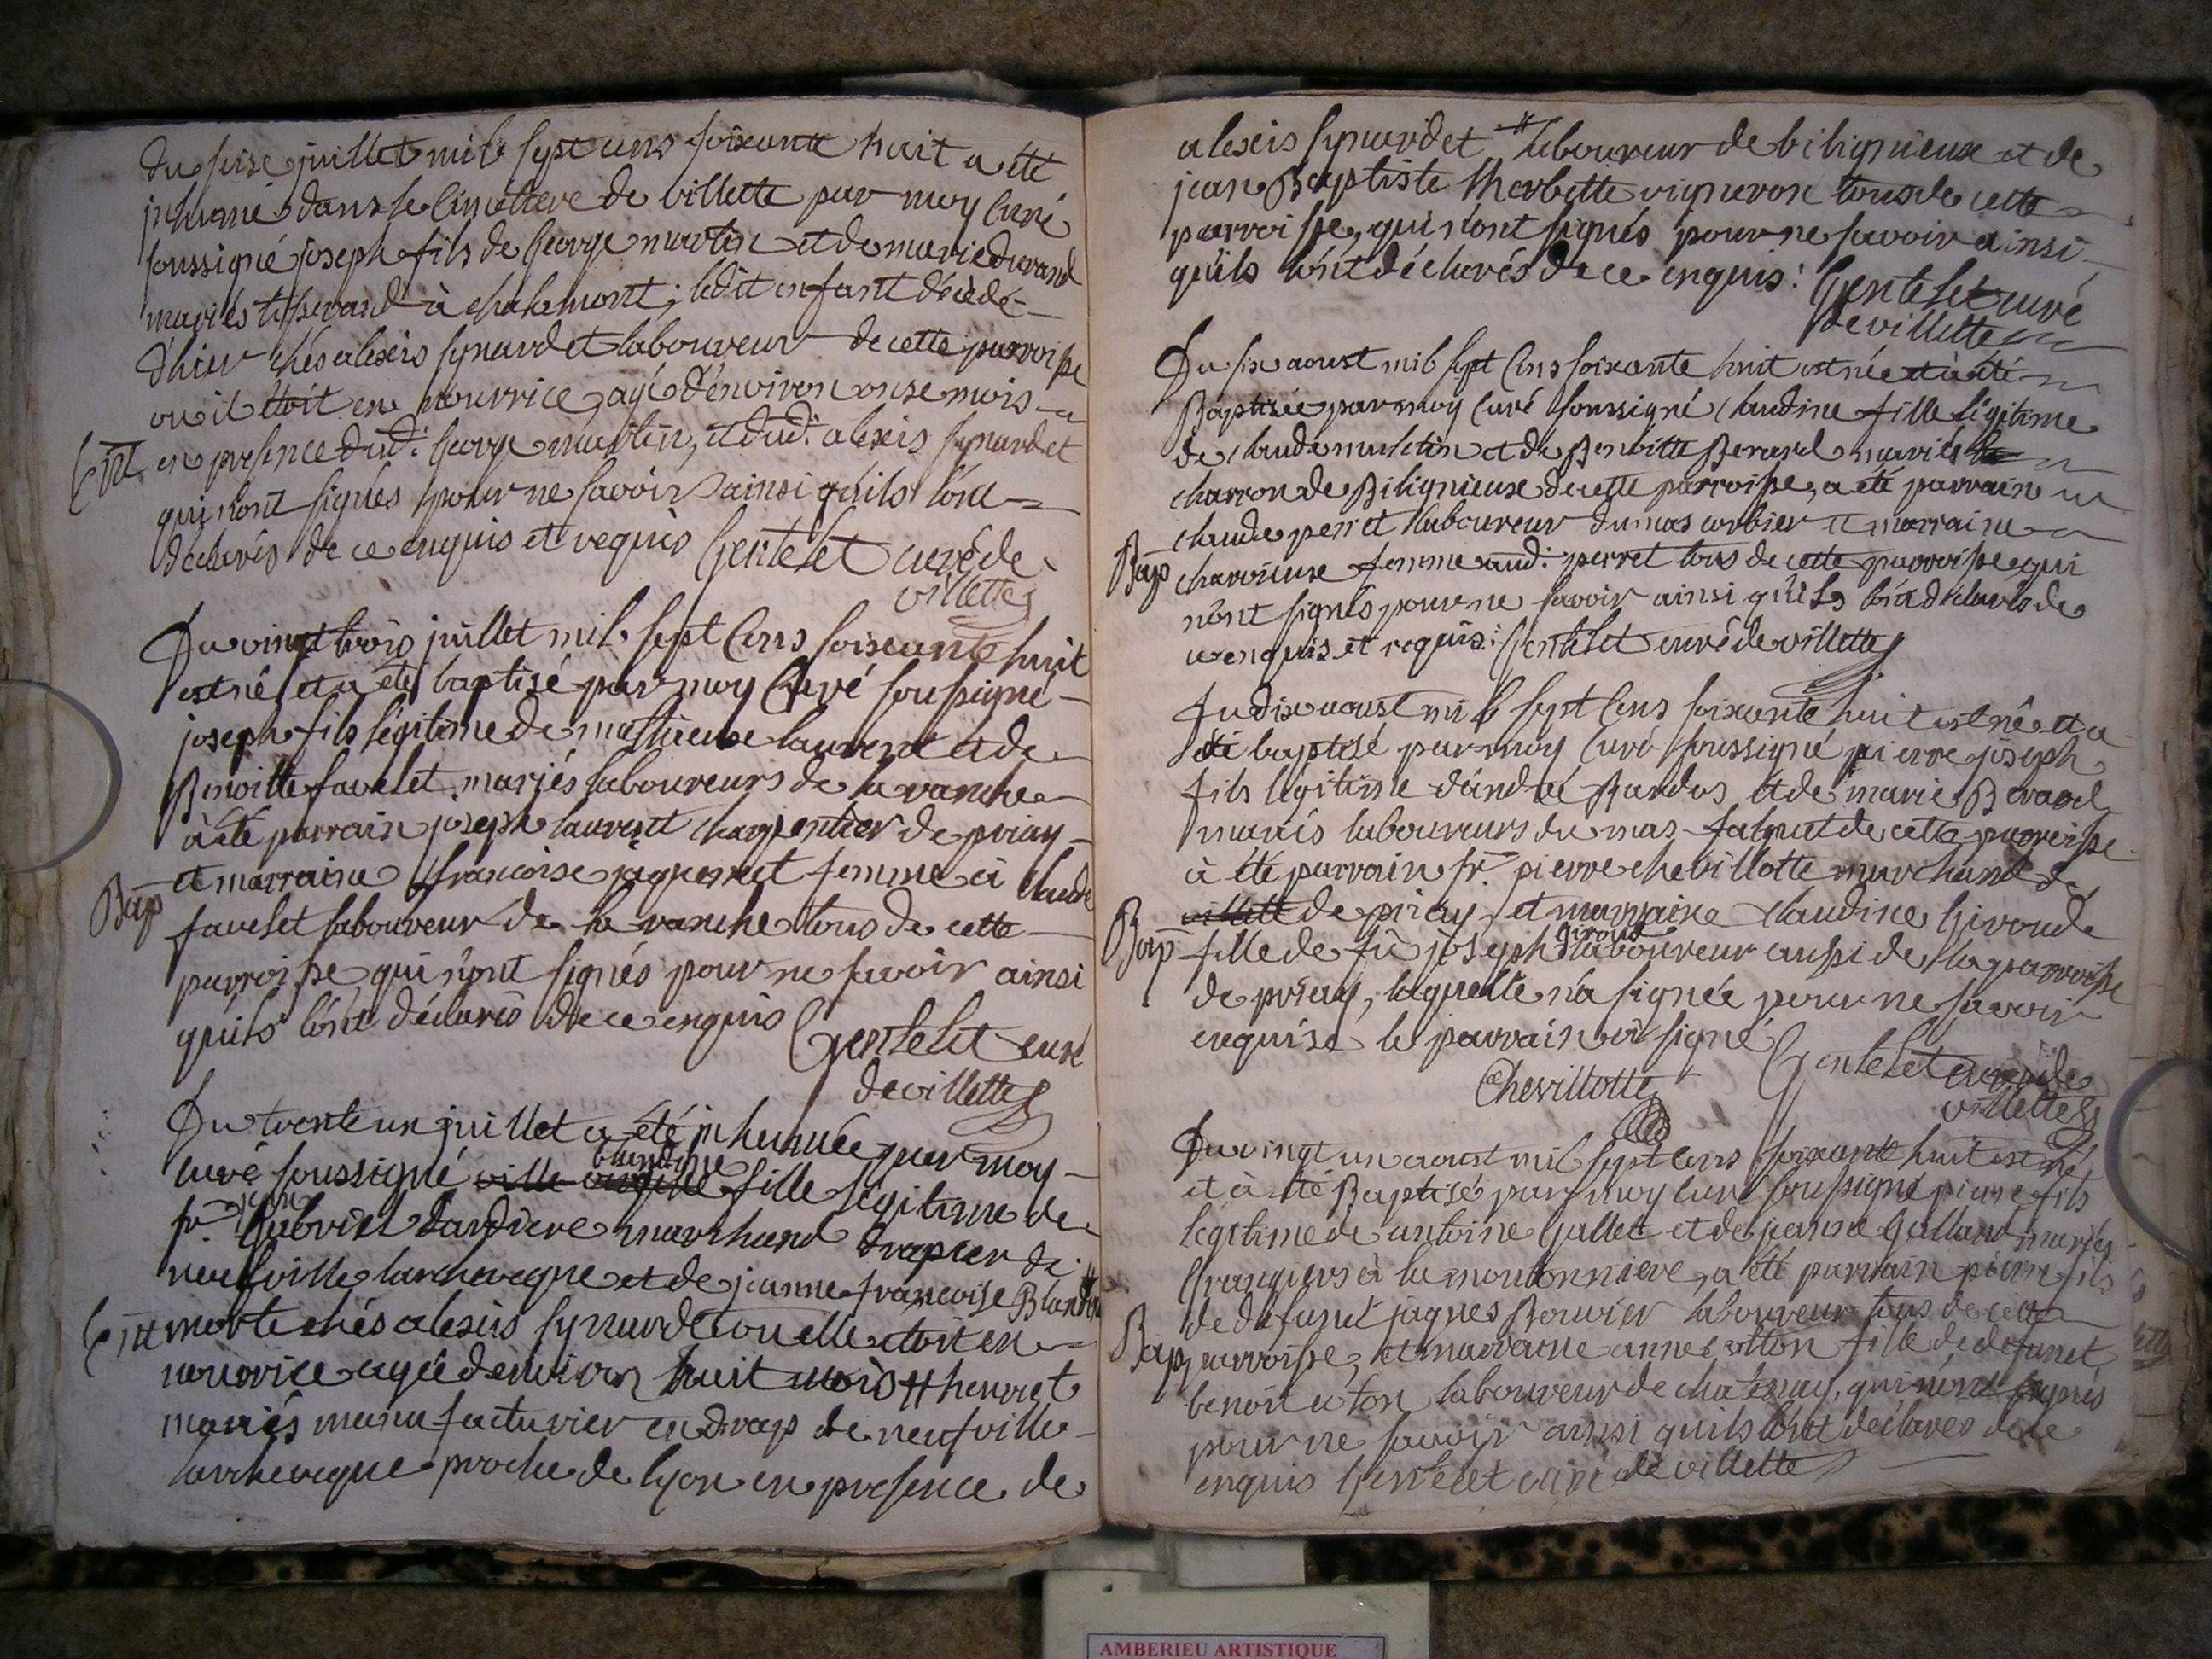 du seise juillet mil sept cens soixante huit a été
inhumé dans le cimettere de villette par moy curé
soussigné joseph fils de George martin et de marie durand
mariés tisserand à chalamont; ledit enfant décédé
d'hier chés alexis synardet laboureur de cette parroisse
ou il étoit en nourrice, agé d'environ onse mois
Ent en presence dud: George martin, et dud: alexis synardet
qui n'ont signés pour ne savoir ainsi qu'ils l'ont
déclarés de ce enquis et requis Gentelet curé de
villette
Du vingt trois juillet mil sept cens soixante huit
est né et a été baptisé par moy curé soussigné
joseph fils légitime de mathieu laurent et de
Benoitte favelet mariés laboureurs de la ranche
à été parrain joseph laurent charpentier de priay
et marraine francoise jaquemet femme à claude
Bap favelet laboureur de la ranche tous de cette
parroisse qui n'ont signés pour ne savoir ainsi
qu'ils l'ont déclarés de ce enquis Gentelet curé
de villette
Du trente un juillet a été inhumée par moy
claudine
curé soussigné ville fille légitime de
sr. Gabriel dardiere marchand drapier de
neufville larcheveque et de jeanne francoise Blandin
Ent morte chés alexis synardet ou elle etoit en
nourrice agée d'environ huit mois # henriet
mariés manufacturier en drap de neufville
larcheveque proche de lyon en presence de
alexis synardet # laboureur de bilignieux et de
jean Baptiste Therbette vigneron tous de cette
parroisse, qui n'ont signés pour ne savoir ainsi
qu'ils l'ont déclarés de ce enquis: Gentelet curé
de villette
Du six aoust mil sept cens soixante huit est née et a été
Baptisée par moy curé soussigné claudine fille légitime
de claude et de Benoitte Berard mariés
charron de Bilignieux de cette parroisse, a été parrain
claude perret laboureur du mas corbier et marraine
Bap femme aud: perret tous de cette parroisse qui
n'ont signés pour ne savoir ainsi qu'ils l'ont déclarés de
ce enquis et requis: Gentelet curé de villette
Du dix aoust mil sept cens soixante huit est né et a
été baptisé par moy curé soussigné pierre joseph
fils légitime d'andré Bardos et de marie Berard
mariés laboureurs du mas de cette parroisse
à été parrain sr. pierre chevillotte marchand de
villette de priay, et marraine claudine Giroude
giroud
Bap fille de fû joseph laboureur aussi de la parroisse
de priay, laquelle n'a signée pour ne savoir
enquise le parrain a signé
Chevillotte Gentelet curé de
villette
Du vingt un aoust mil sept cens soixante huit est né
et à été Baptisé par moy curé soussigné pierre fils
légitime de antoine Gallet et de jeanne Galland mariés
Grangers à la moutonniere, a été parrain pierre fils
de défunct jaques Bouvier laboureur tous de cette
Bap parroisse, et marraine anne fille de defunct
benoit laboureur de chatenay, qui n'ont signés
pour ne savoir ainsi qu'ils l'ont déclarés de ce
enquis Gentelet curé de villette
AMBERIEU ARTISTIQUE